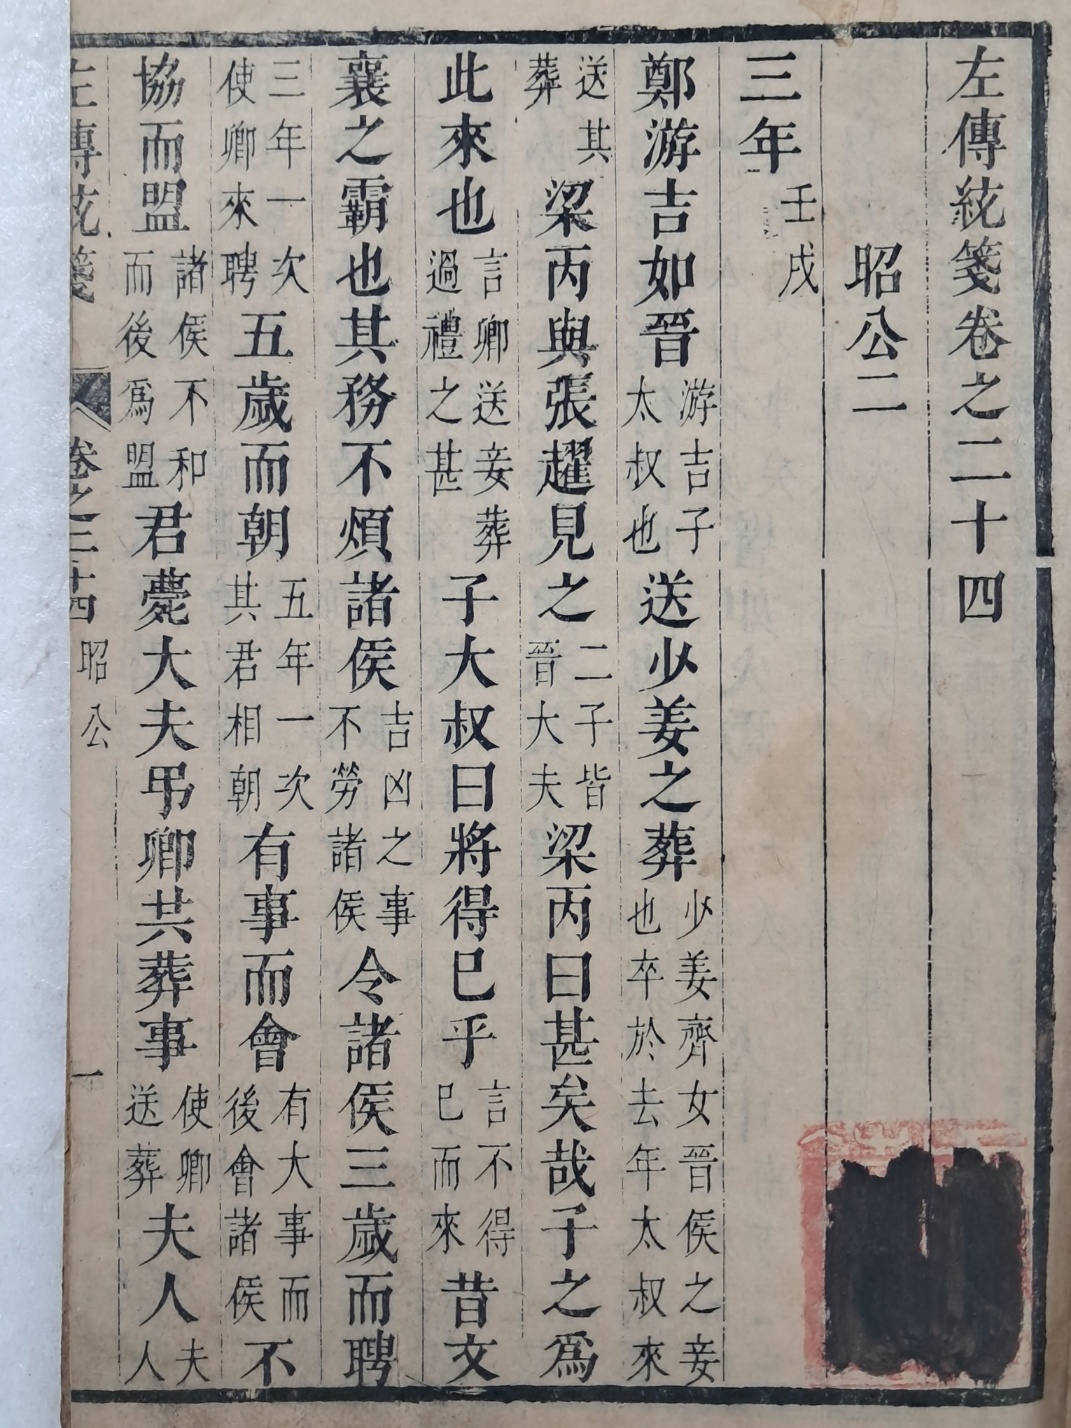 左傳統箋卷之二十四
昭公二
三年壬戌
鄭游吉如晉游吉子太叔也送少姜之葬少姜齊女晉侯之妾也卒於去年太叔來
送其葬梁丙與張趯見之二子皆晉大夫梁丙曰甚矣哉子之爲
此來也言卿送妾葬過禮之甚子大叔曰將得已乎言不得已而來昔文
襄之霸也其務不煩諸侯吉凶之事不勞諸侯令諸侯三歲而聘
三年一次使卿來聘五歲而朝五年一次其君相朝有事而會有大事而後會諸侯不
協而盟諸侯不和而後爲盟君薨大夫弔卿共葬事使卿送葬夫人夫人
左傳統箋 卷之二十四 昭公 一